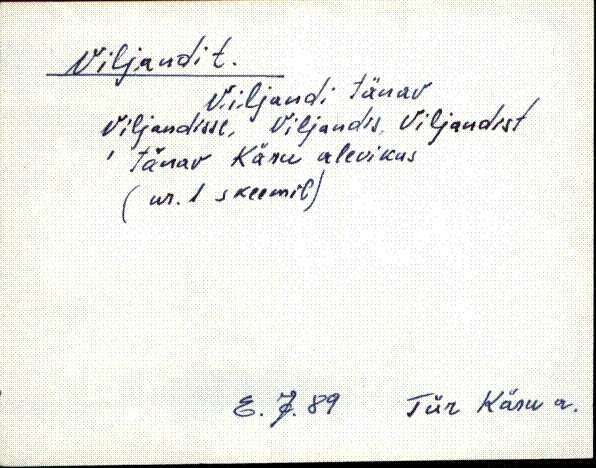 Viljandi t.
Viljandi tänav
Viljandisse, Viljandis, Viljandist
' tänav Käru alevikus
(nr. 1 skeemil)
E. J. 89 Tür Käru a.